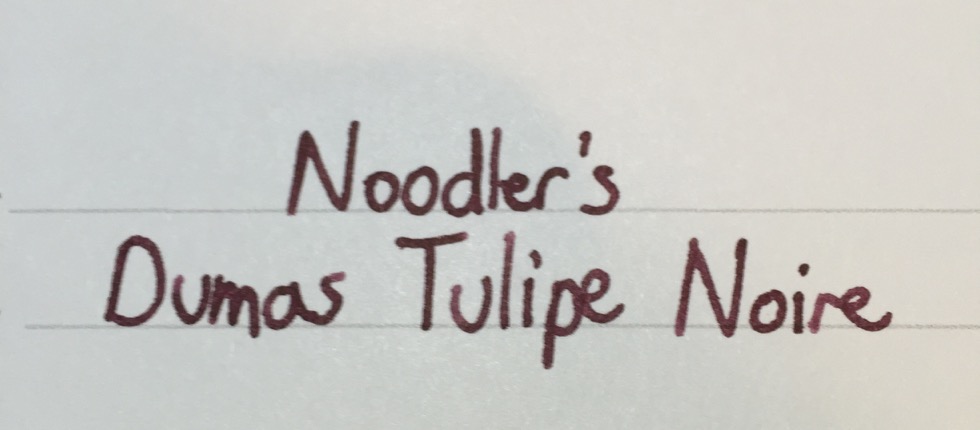 Noodler's
Dumas Tulipe Noire